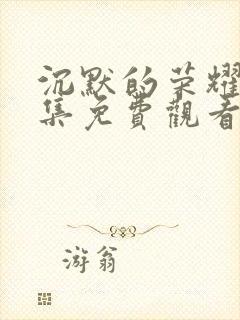 沉默的荣耀
集免費觀看
游翁